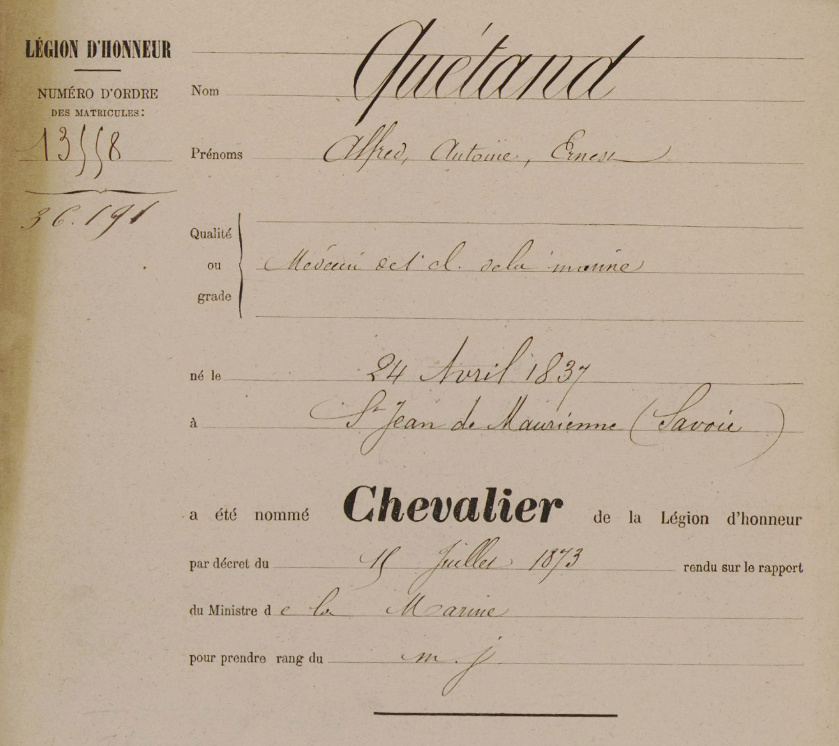 LÉGION D'HONNEUR
NUMÉRO D'ORDRE
DES MATRICULES:
13558
36.191
Nom Quétand
Prénoms Alfred, Antoine, Ernest
Qualité
ou
grade
Médecin de 1e cl. de la marine
né le 24 Avril 1837
à St Jean de Maurienne (Savoie)
a été nommé Chevalier de la Légion d'honneur
par décret du 15 Juillet 1873 rendu sur le rapport
du Ministre de la Marine
pour prendre rang du m. j.